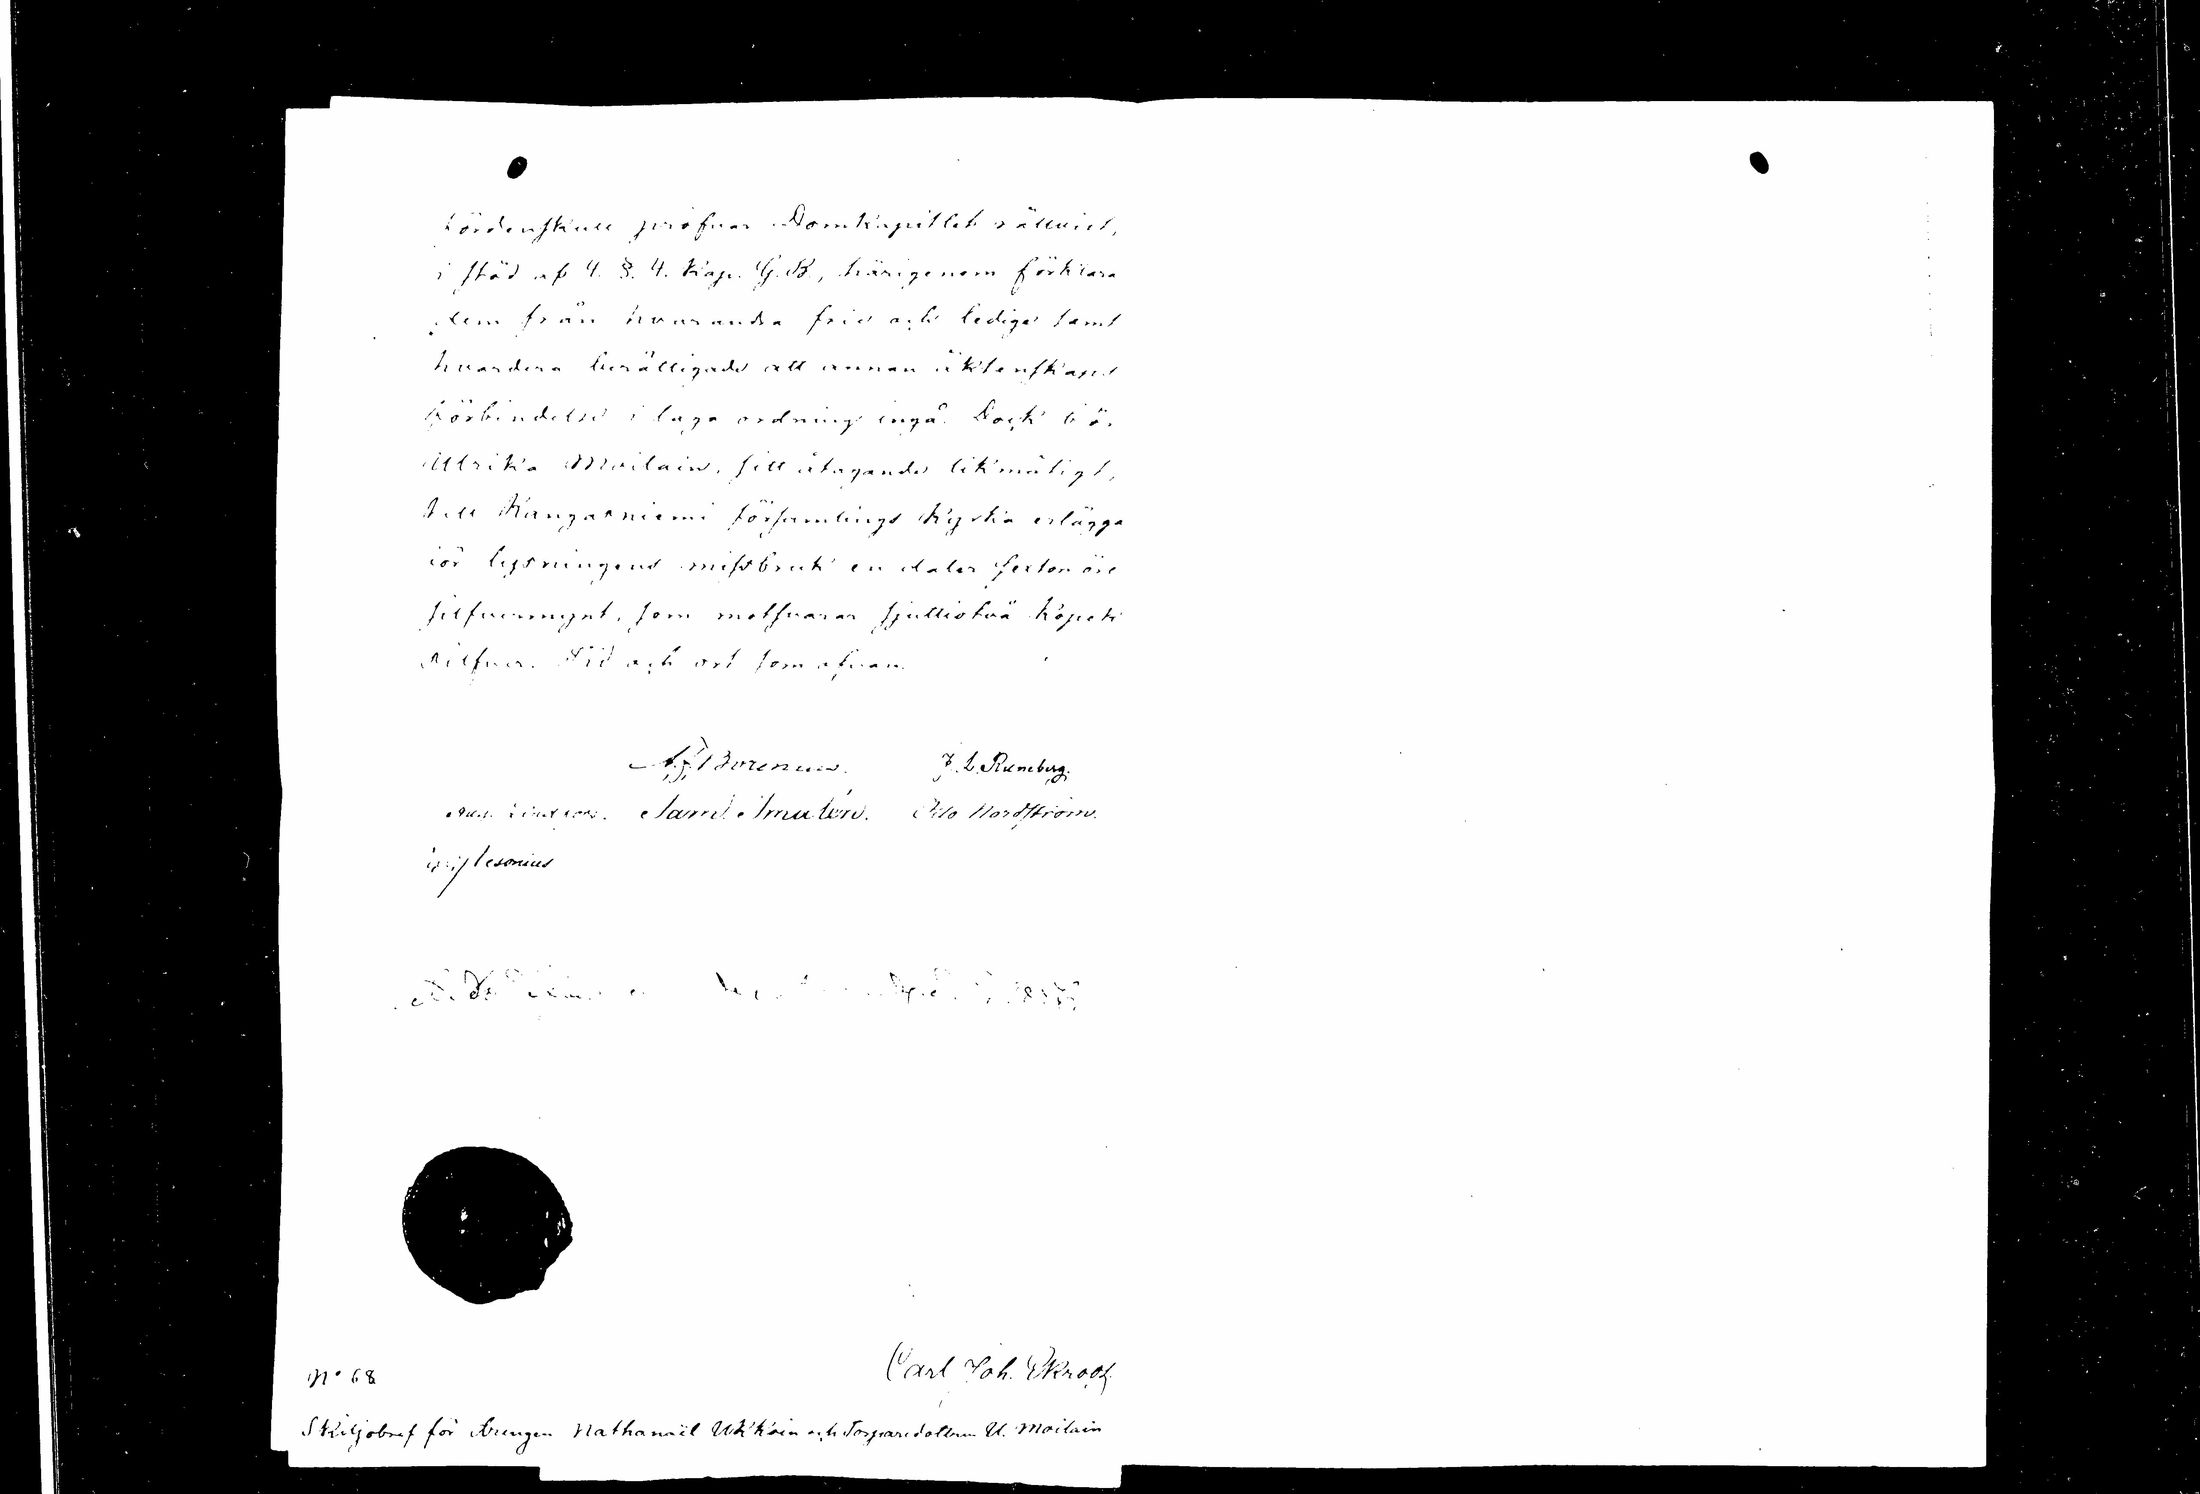 fördenskull pröfvar Domkapitlet rättvist,
i stöd af 4. §. 4. Kap. G. B., härigenom förklara
dem från hvarandra fria och lediga samt
hvardera berättigade att annan äktenskaps
förbindelse i laga ordning ingå. Dock bör
Ulrika Moilain, sitt åtagande likmätigt,
till Kangasniemi församlings Kyrka erlägga
för lysningens missbruk en daler sexton öre
silfvermynt, som motsvarar sjuttiotvå kopek
silfver. Tid och ort som ofvan.
Borenius. J. L. Runeberg.
Saml. Otto Nordström.
N° 68
Carl Joh. Ekroos
Skiljobref för drengen Nathanaël Ukkoin och Torparedottern U. Moilain